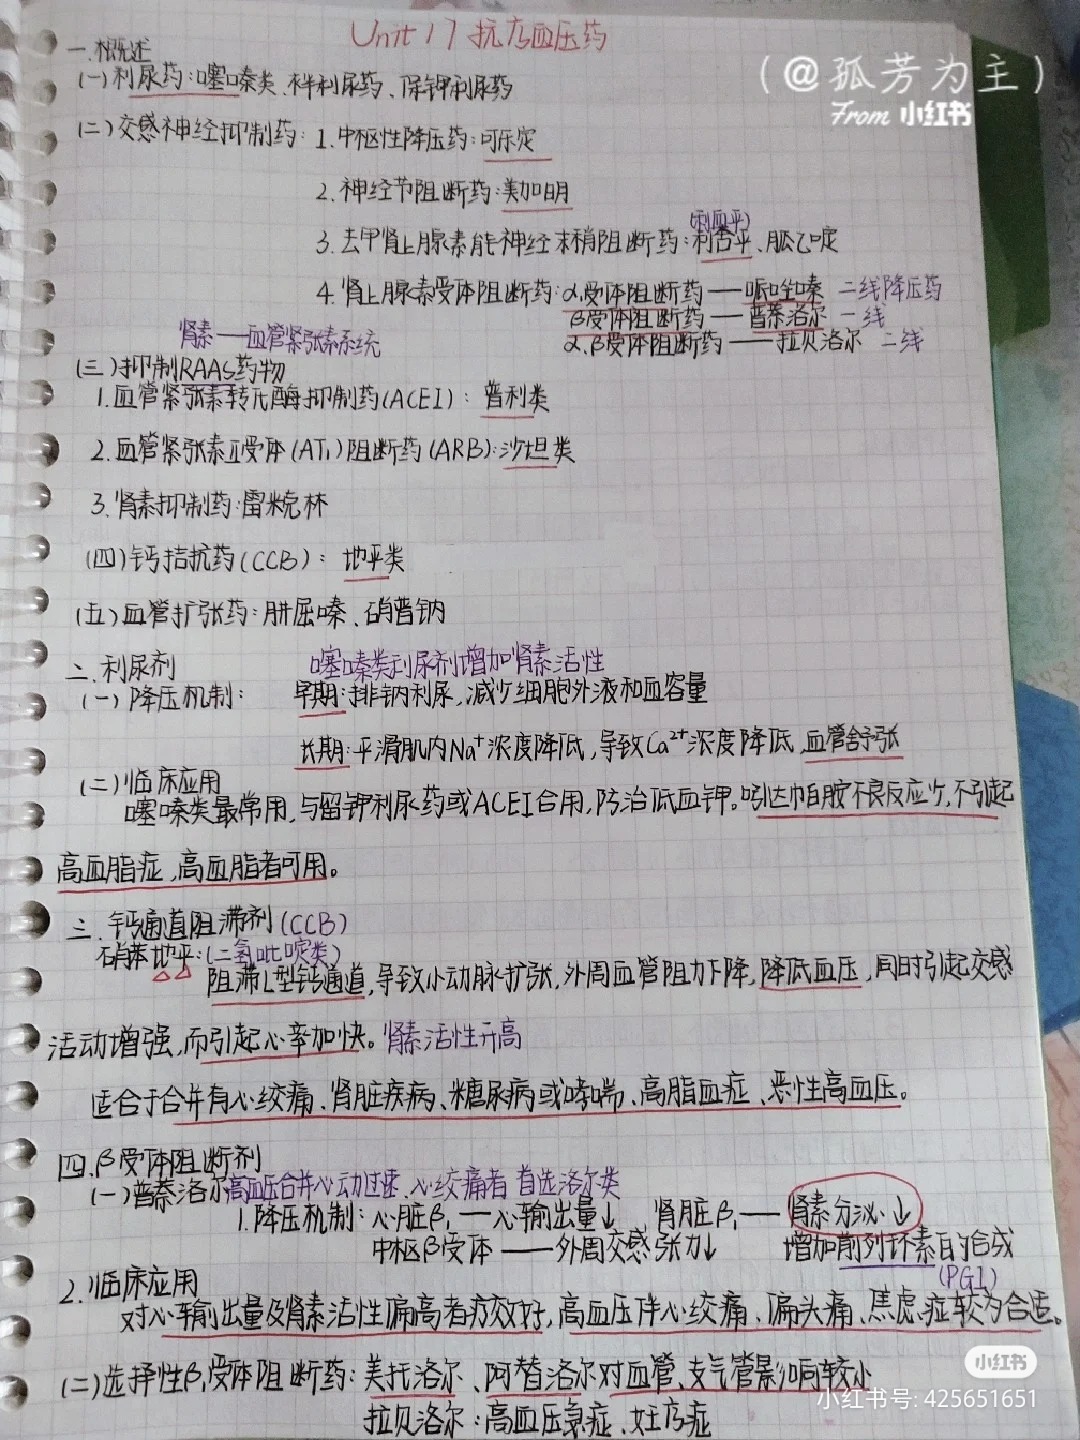 Unit 17 抗高血压药
(@孤芳为主)
From 小红书
一.概述
(一)利尿药:噻嗪类、袢利尿药、保钾利尿药
(二)交感神经抑制药: 1.中枢性降压药:可乐定
2.神经节阻断药:美加明
(利血平)
3.去甲肾上腺素能神经末稍阻断药:利舍平、胍乙啶
4.肾上腺素受体阻断药:α₁受体阻断药——哌唑嗪 二线降压药
β受体阻断药——普萘洛尔 一线
肾素——血管紧张素系统
α、β受体阻断药——拉贝洛尔 二线
(三)抑制RAAS药物
1.血管紧张素转化酶抑制药(ACEI): 普利类
2.血管紧张素Ⅱ受体(AT₁)阻断药(ARB):沙坦类
3.肾素抑制药:雷米克林
(四)钙拮抗药(CCB): 地平类
(五)血管扩张药:肼屈嗪、硝普钠
二.利尿剂 噻嗪类利尿剂增加肾素活性
(一)降压机制: 早期:排钠利尿,减少细胞外液和血容量
长期:平滑肌内Na⁺浓度降低,导致Ca²⁺浓度降低,血管舒张
(二)临床应用
噻嗪类最常用,与留钾利尿药或ACEI合用,防治低血钾。吲达帕胺不良反应少,不引起
高血脂症,高血脂者可用。
三.钙通道阻滞剂(CCB)
硝苯地平:(二氢吡啶类)
阻滞L型钙通道,导致小动脉扩张,外周血管阻力下降,降低血压,同时引起交感
活动增强,而引起心率加快。肾素活性升高
适合于合并有心绞痛、肾脏疾病、糖尿病或哮喘、高脂血症、恶性高血压。
四.β受体阻断剂
(一)普萘洛尔 高血压合并心动过速、心绞痛者 首选洛尔类
1.降压机制:心脏β₁——心输出量↓ 肾脏β₁——肾素分泌↓
中枢β受体——外周交感张力↓ 增加前列环素的合成
(PGI)
2.临床应用
对心输出量及肾素活性偏高者疗效好,高血压伴心绞痛、偏头痛、焦虑症较为合适。
(二)选择性β₁受体阻断药:美托洛尔、阿替洛尔对血管、支气管影响较小
拉贝洛尔:高血压急症、妊高症
小红书
小红书号: 425651651